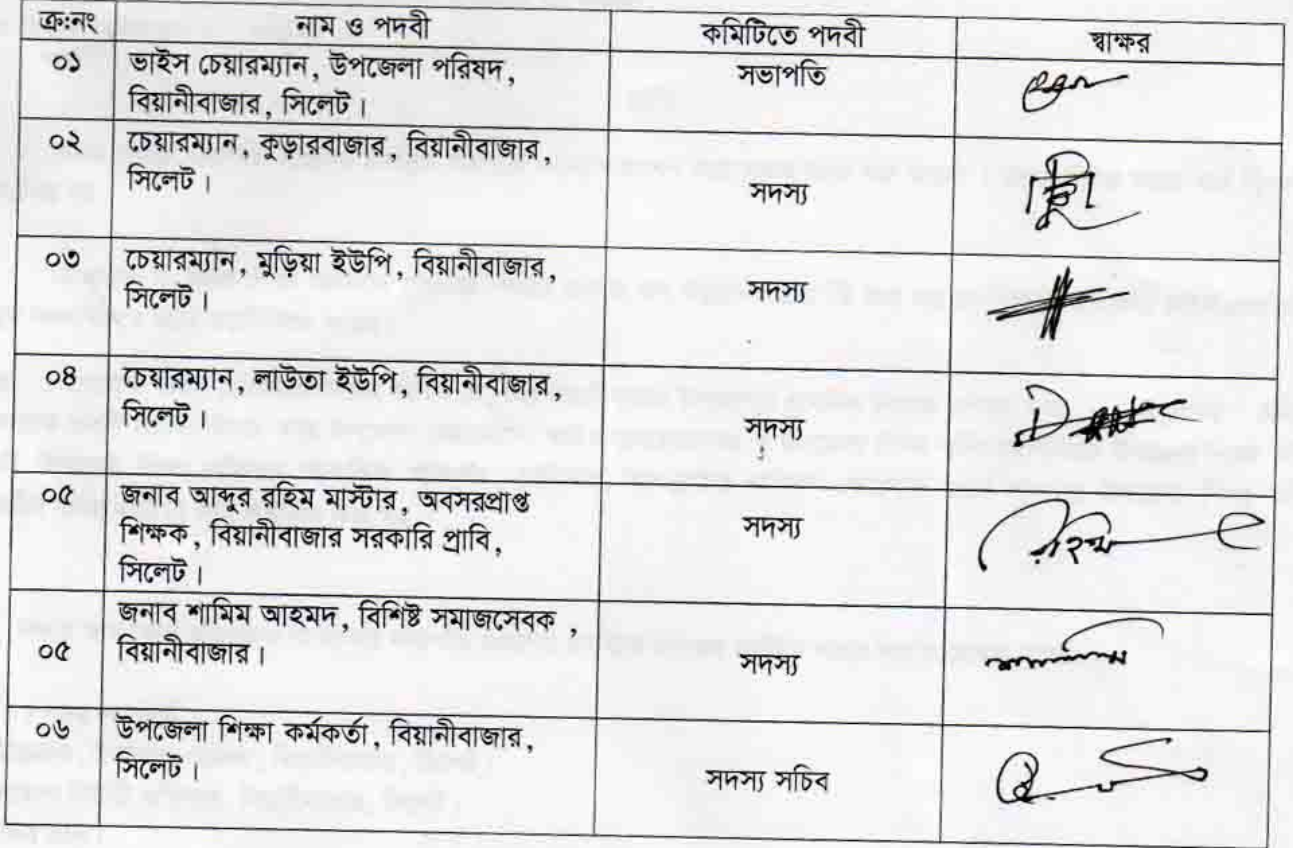 ক্র:নং নাম ও পদবী কমিটিতে পদবী স্বাক্ষর
০১ ভাইস চেয়ারম্যান, উপজেলা পরিষদ, সভাপতি
বিয়ানীবাজার, সিলেট।
০২ চেয়ারম্যান, কুড়ারবাজার, বিয়ানীবাজার,
সিলেট। সদস্য
০৩ চেয়ারম্যান, মুড়িয়া ইউপি, বিয়ানীবাজার,
সিলেট। সদস্য
০৪ চেয়ারম্যান, লাউতা ইউপি, বিয়ানীবাজার,
সিলেট। সদস্য
০৫ জনাব আব্দুর রহিম মাস্টার, অবসরপ্রাপ্ত
শিক্ষক, বিয়ানীবাজার সরকারি প্রাবি, সদস্য
সিলেট।
জনাব শামিম আহমদ, বিশিষ্ট সমাজসেবক ,
০৫ বিয়ানীবাজার। সদস্য
০৬ উপজেলা শিক্ষা কর্মকর্তা, বিয়ানীবাজার,
সিলেট। সদস্য সচিব